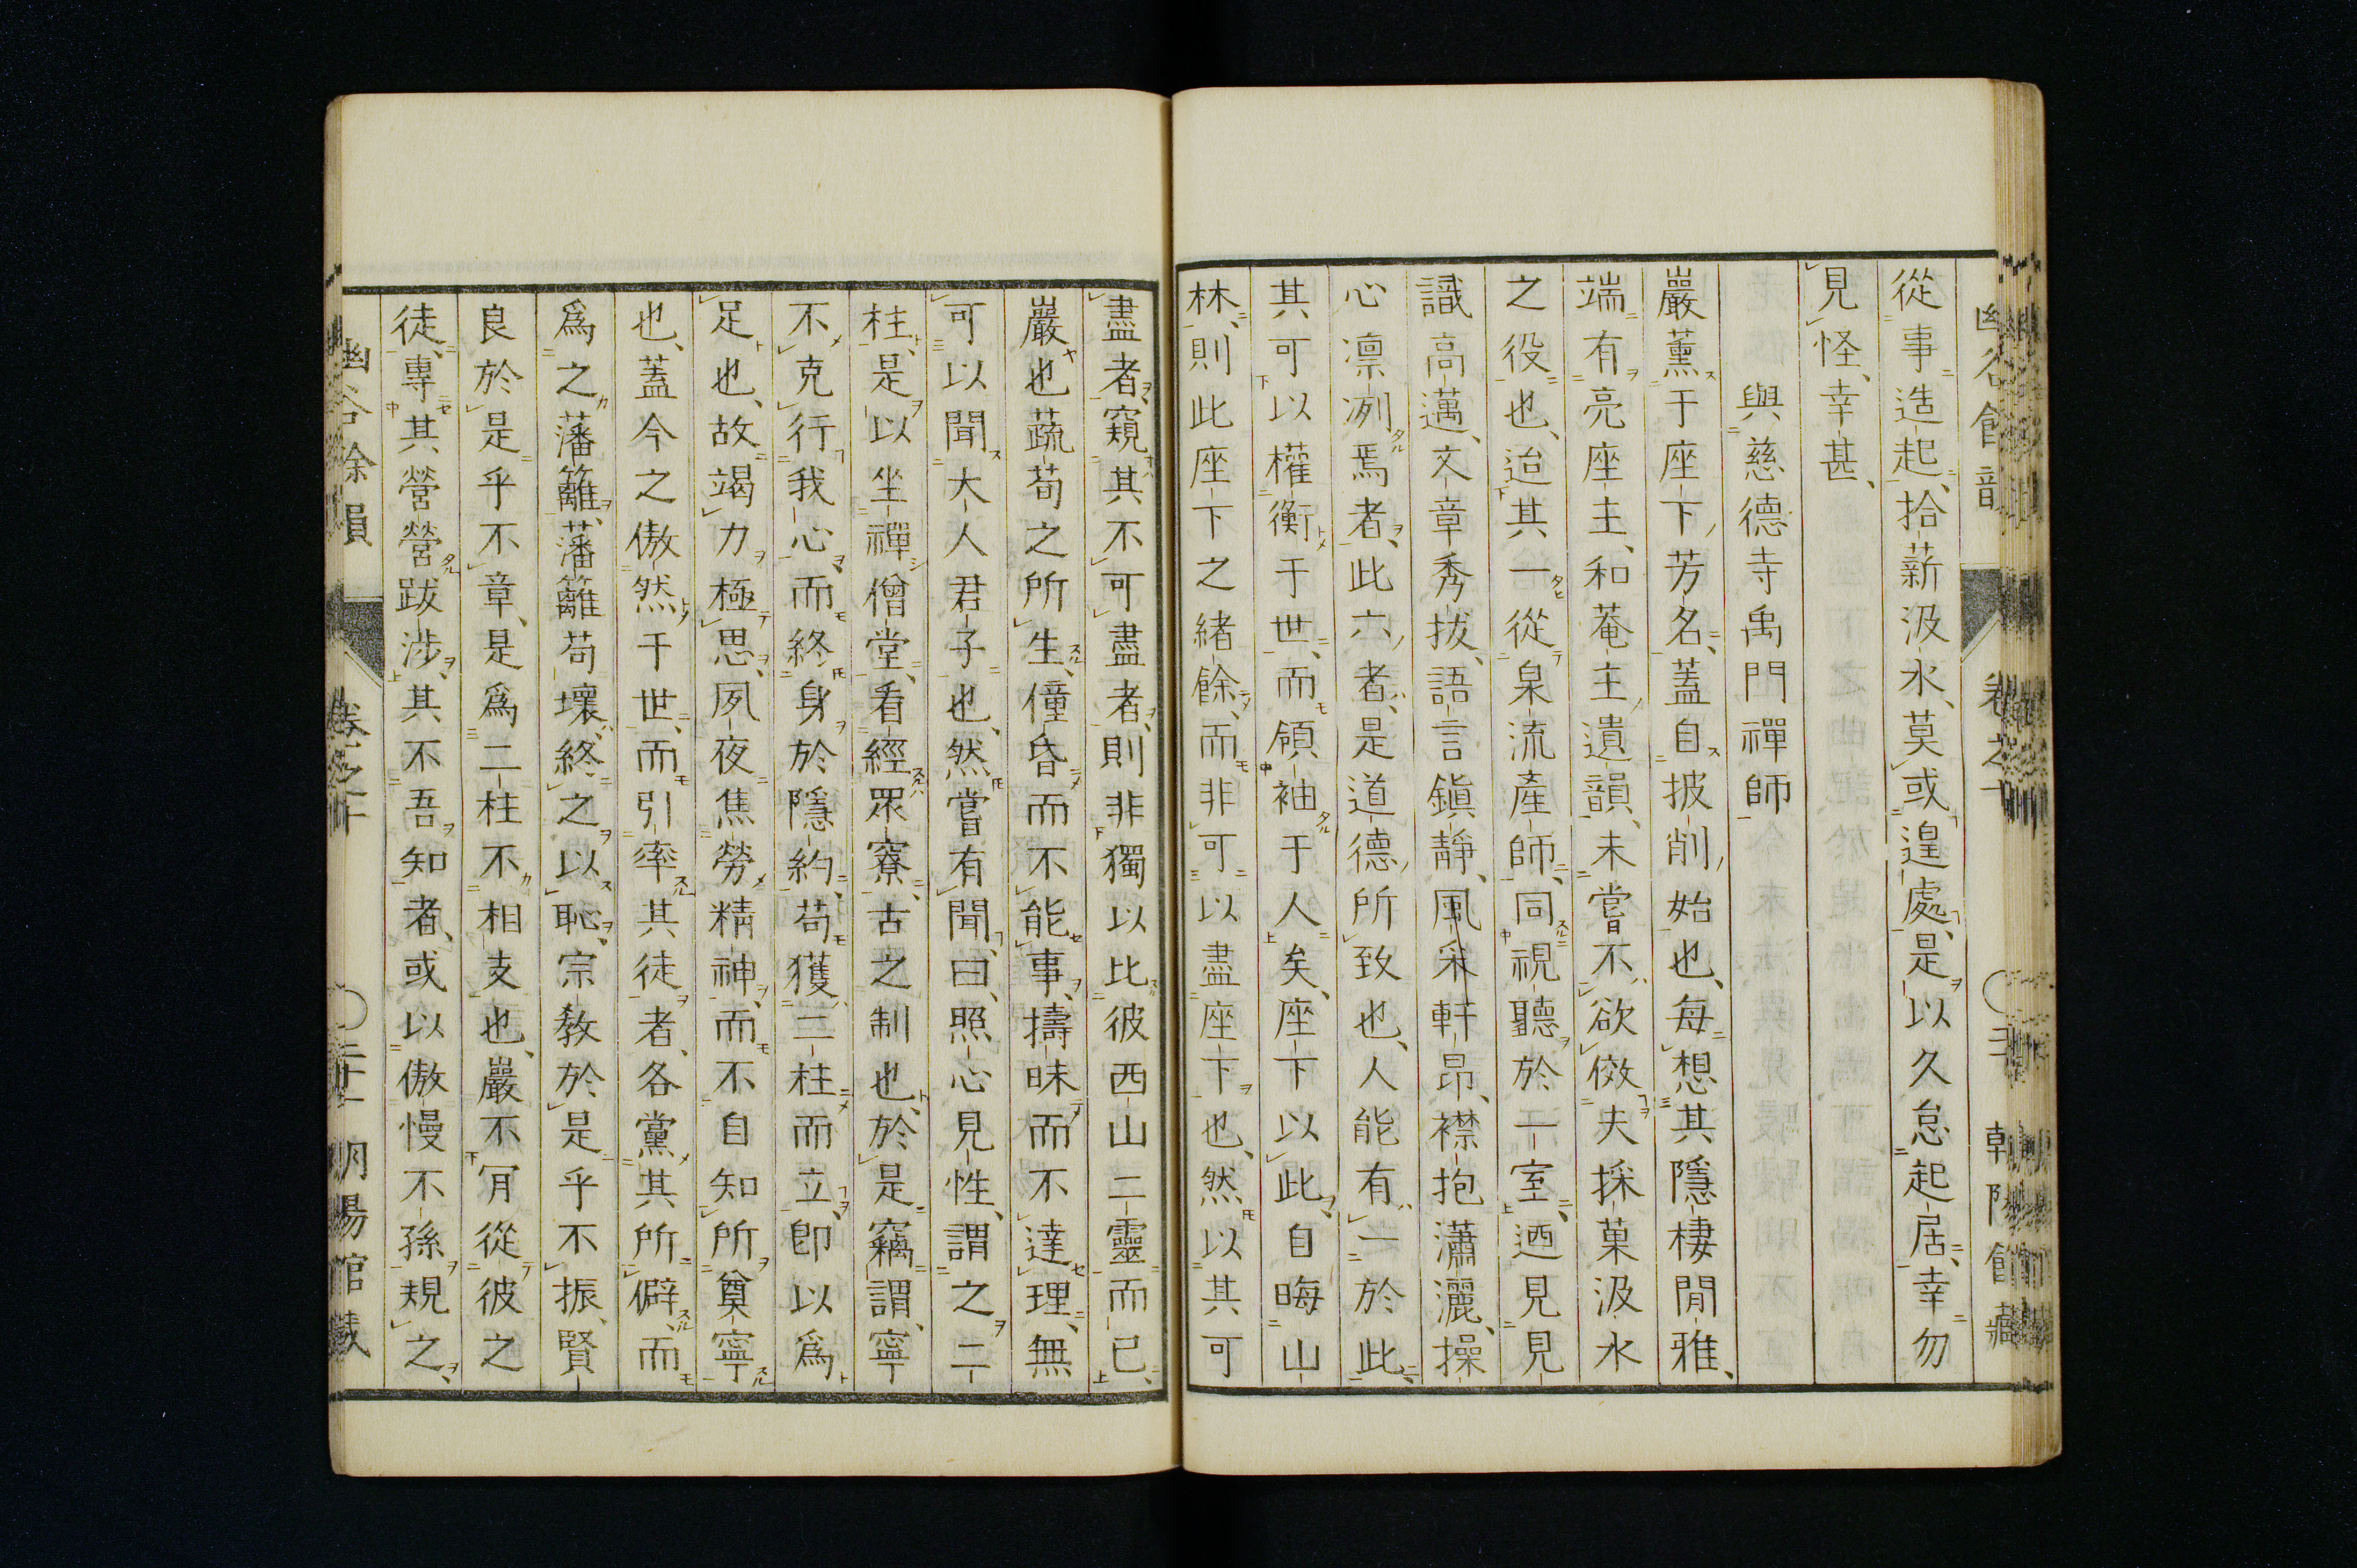 從事造起、拾薪汲水、莫或遑處、是以久怠起居、幸勿
見怪、幸甚、
與慈德寺禹門禪師
嚴薰于座下芳名、蓋自披削始也、每想其隱棲閒雅、
端有亮座主、和菴主遺韻、未嘗不欲傚夫採菓汲水
之役也、迨其一從泉流產師、同視聽於一室、迺見見
識高邁、文章秀拔、語言鎭靜、風采軒昂、襟抱瀟灑、操
心凛冽焉者、此六者、是道德所致也、人能有一於此、
其可以權衡于世、而領袖于人矣、座下以此自晦山
林、則此座下之緒餘、而非可以盡座下也、然以其可
盡者、窺其不可盡者、則非獨以比彼西山二靈而已、
嚴也蔬荀之所生、僮昏而不能事、擣昧而不達理、無
可以聞大人君子也、然嘗有聞、曰、照心見性、謂之二
柱、是以坐禪僧堂、看經眾寮、古之制也、於是竊謂、寧
不克行我心、而終身於隱約、苟獲二柱而立、即以爲
足也、故竭力極思、夙夜焦勞精神、而不自知所奠寧
也、蓋今之傲然干世、而引率其徒者、各黨其所僻、而
爲之藩籬、藩籬苟壞、終之以恥、宗教於是乎不振、賢
良於是乎不章、是爲二柱不相支也、嚴不肎從彼之
徒、專其營營跋涉、其不吾知者、或以傲慢不孫規之、
幽谷餘韻 卷之十 二十一 明陽館藏